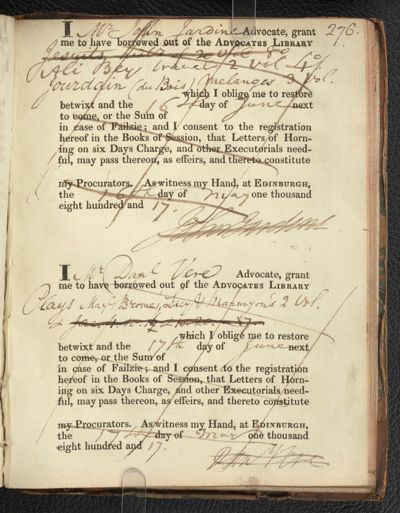 276.
I Mr John Jardine Advocate, grant
me to have borrowed out of the ADVOCATES LIBRARY
Jesuits 2 Vol 8o
Ali Bey travels 2 vol 4o
Jourdain (du Bois) Melanges 3 Vol.
which I oblige me to restore
betwixt and the 16 day of June next
to come, or the Sum of
in case of Failzie; and I consent to the registration
hereof in the Books of Session, that Letters of Horn-
ing on six Days Charge, and other Executorials need-
ful, may pass thereon, as effeirs, and thereto constitute
my Procurators. As witness my Hand, at EDINBURGH,
the 16th day of May one thousand
eight hundred and 17.
John Jardine
I Mr Danl Vere Advocate, grant
me to have borrowed out of the ADVOCATES LIBRARY
Plays 2 Vol.
which I oblige me to restore
betwixt and the 17th day of June next
to come, or the Sum of
in case of Failzie; and I consent to the registration
hereof in the Books of Session, that Letters of Horn-
ing on six Days Charge, and other Executorials need-
ful, may pass thereon, as effeirs, and thereto constitute
my Procurators. As witness my Hand, at EDINBURGH,
the 17th day of May one thousand
eight hundred and 17.
Vere